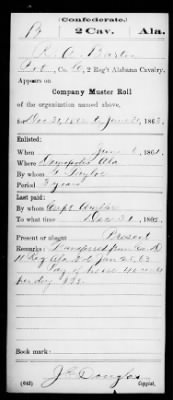 (Confederate.)
B | 2 Cav. | Ala.
R. A.
Pvt, Co. , 2 Reg't Alabama Cavalry.
Appears on
Company Muster Roll
of the organization named above,
for Dec 31, 1862 to June 30, 1863.
Enlisted:
When June 6, 1861.
Where Demopolis Ala
By whom
Period 3 years
Last paid:
By whom Capt.
To what time Dec 31, 1862.
Present or absent Present
Remarks: Transferred from Co. D
11 Reg Ala Vol Jan 25, 63
Pay of horse 40 cents
per day
Book mark:
(642) J. E. Douglas
Copyist.